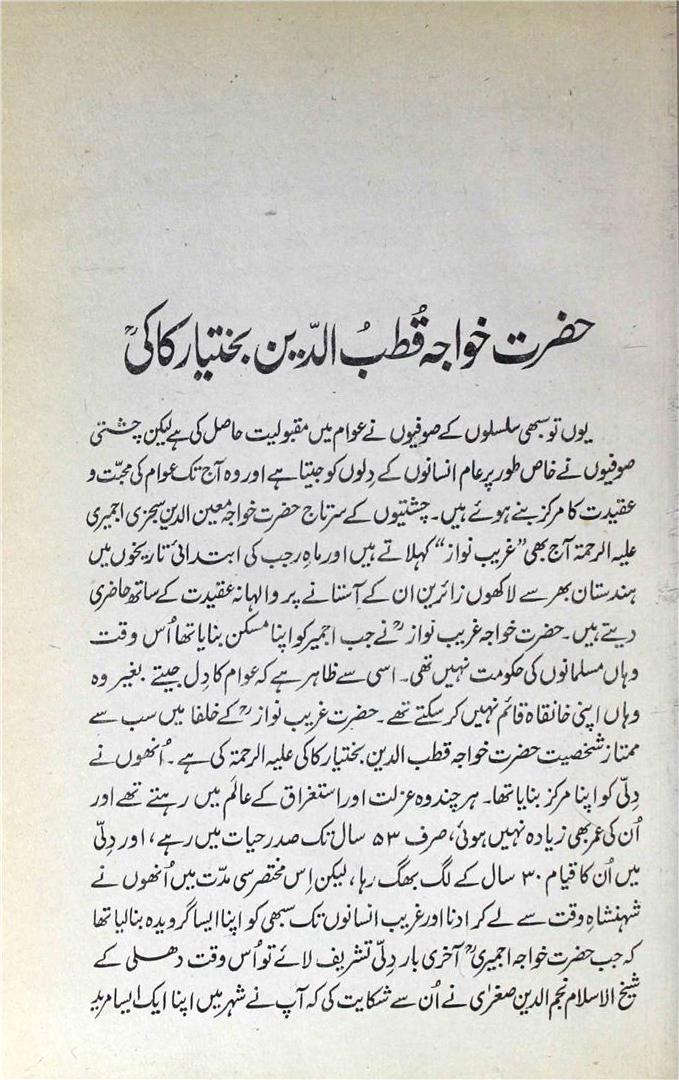 حضرت خواجہ قُطبُ الدّین بختیار کاکیؒ
یوں تو سبھی سلسلوں کے صوفیوں نے عوام میں مقبولیت حاصل کی ہے لیکن چشتی
صوفیوں نے خاص طور پر عام انسانوں کے دِلوں کو جیتا ہے اور وہ آج تک عوام کی محبّت و
عقیدت کا مرکز بنے ہوئے ہیں۔ چشتیوں کے سرتاج حضرت خواجہ معین الدین سجزی اجمیری
علیہ الرحمۃ آج بھی ”غریب نواز“ کہلاتے ہیں اور ماہِ رجب کی ابتدائی تاریخوں میں
ہندستان بھر سے لاکھوں زائرین ان کے آستانے پر والہانہ عقیدت کے ساتھ حاضری
دیتے ہیں۔ حضرت خواجہ غریب نوازؒ نے جب اجمیر کو اپنا مسکن بنایا تھا اُس وقت
وہاں مسلمانوں کی حکومت نہیں تھی۔ اسی سے ظاہر ہے کہ عوام کا دِل جیتے بغیر وہ
وہاں اپنی خانقاہ قائم نہیں کر سکتے تھے۔ حضرت غریب نوازؒ کے خلفا میں سب سے
ممتاز شخصیت حضرت خواجہ قطب الدین بختیار کاکی علیہ الرحمۃ کی ہے۔ اُنھوں نے
دِلّی کو اپنا مرکز بنایا تھا۔ ہر چند وہ عزلت اور استغراق کے عالَم میں رہتے تھے اور
اُن کی عمر بھی زیادہ نہیں ہوئی، صرف ۵۳ سال تک صدرِ حیات میں رہے، اور دِلّی
میں اُن کا قیام ۳۰ سال کے لگ بھگ رہا، لیکن اِس مختصر سی مدّت میں اُنھوں نے
شہنشاہِ وقت سے لے کر ادنا اور غریب انسانوں تک سبھی کو اپنا ایسا گرویدہ بنا لیا تھا
کہ جب حضرت خواجہ اجمیریؒ آخری بار دِلّی تشریف لائے تو اُس وقت دھلی کے
شیخ الاسلام نجم الدین صغرٰی نے اُن سے شکایت کی کہ آپ نے شہر میں اپنا ایک ایسا مرید